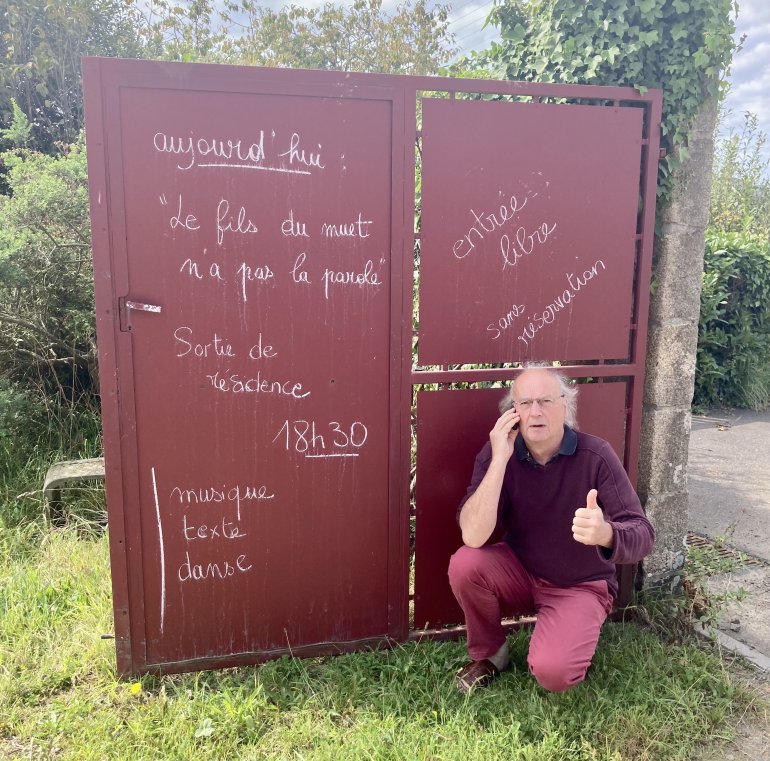 aujourd'hui :
"Le fils du muet
n'a pas la parole"
Sortie de
résidence
18h30
musique
texte
danse
entrée
libre
sans
réservation